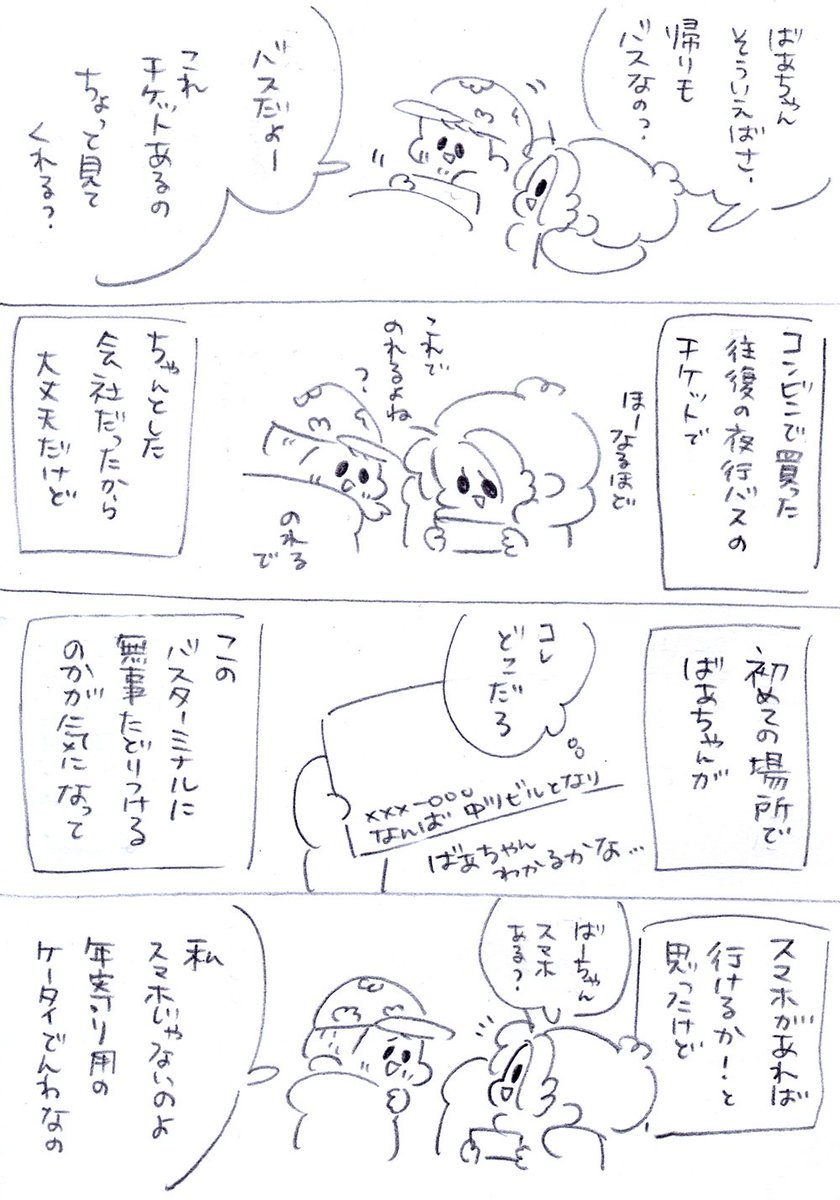 ばあちゃん
そういえばさ、
帰りも
バスなの？
バスだよー
これ
チケットあるの
ちょって見て
くれる？
コンビニで買った
往復の夜行バスの
チケットで
ほーなるほど
これで
のれるよね
？
のれる
で
ちゃんとした
会社だったから
大丈夫だけど
初めての場所で
ばあちゃんが
コレ
どこだろ
xxx-ooo
なんば 中ツビルとなり
ばあちゃん
わかるかな…
この
バスターミナルに
無事たどりつける
のかが気になって
スマホがあれば
行けるか！と
思ったけど
ばーちゃん
スマホ
ある？
私
スマホじゃないのよ
年寄り用の
ケータイでんわなの